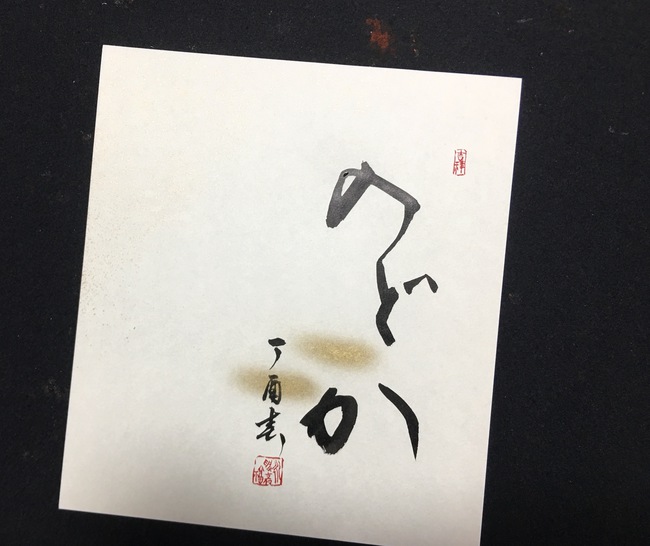 のどか
丁酉春